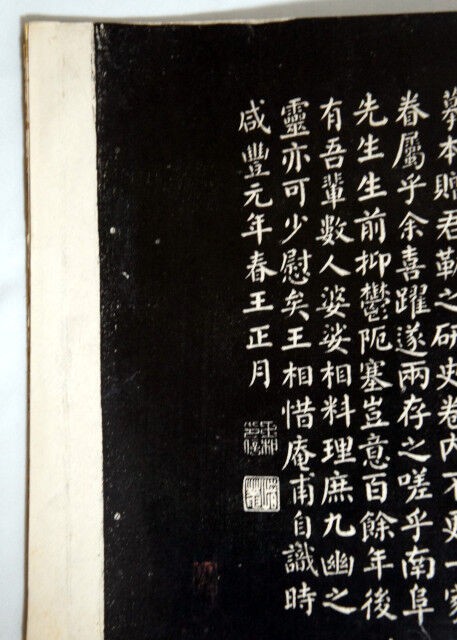 摹本贈君勒之研史卷內不更一家
眷屬乎余喜躍遂兩存之嗟乎南阜
先生生前抑鬱阨塞豈意百餘年後
有吾輩數人婆娑相料理庶九幽之
靈亦可少慰矣王相惜庵甫自識時
咸豐元年春王正月